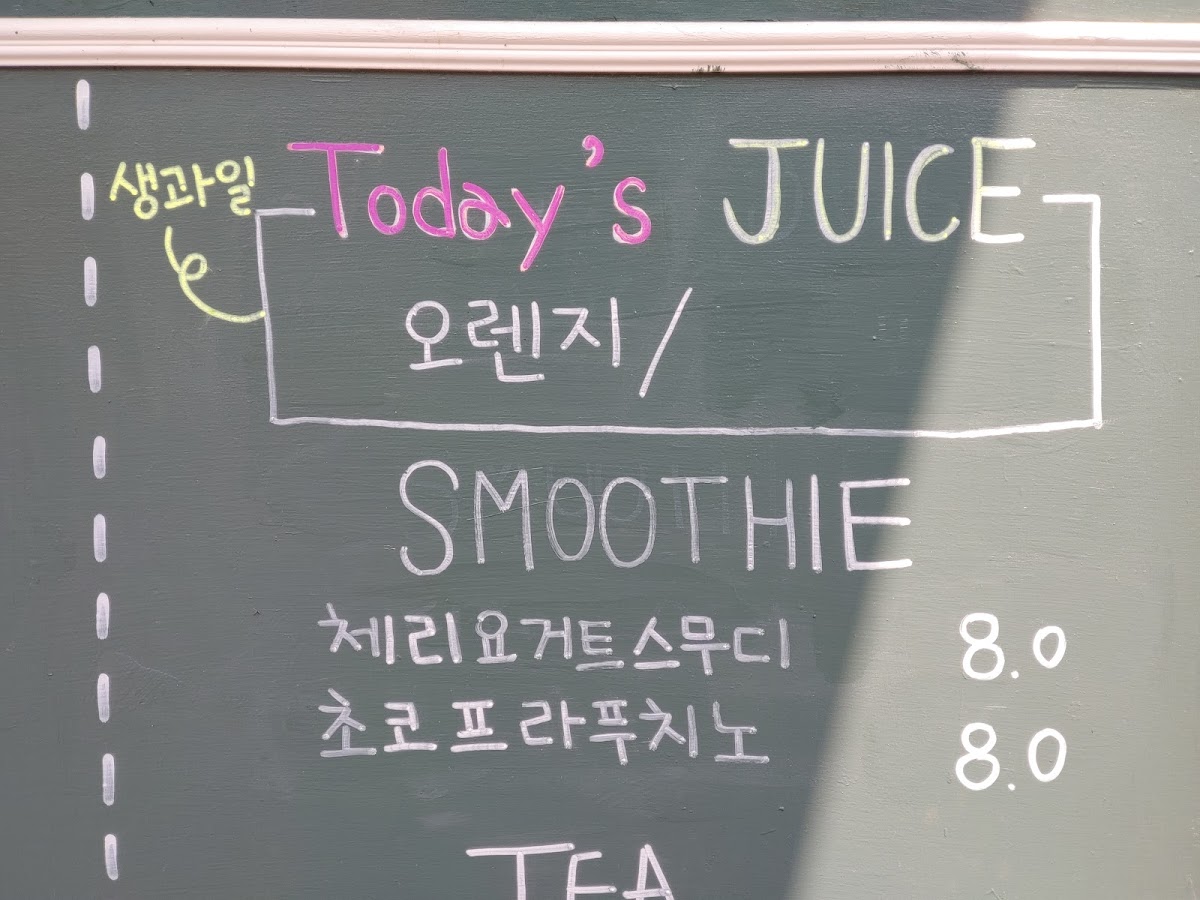 생과일
Today's JUICE
오렌지/
SMOOTHIE
체리요거트스무디 8.0
초코프라푸치노 8.0
TEA